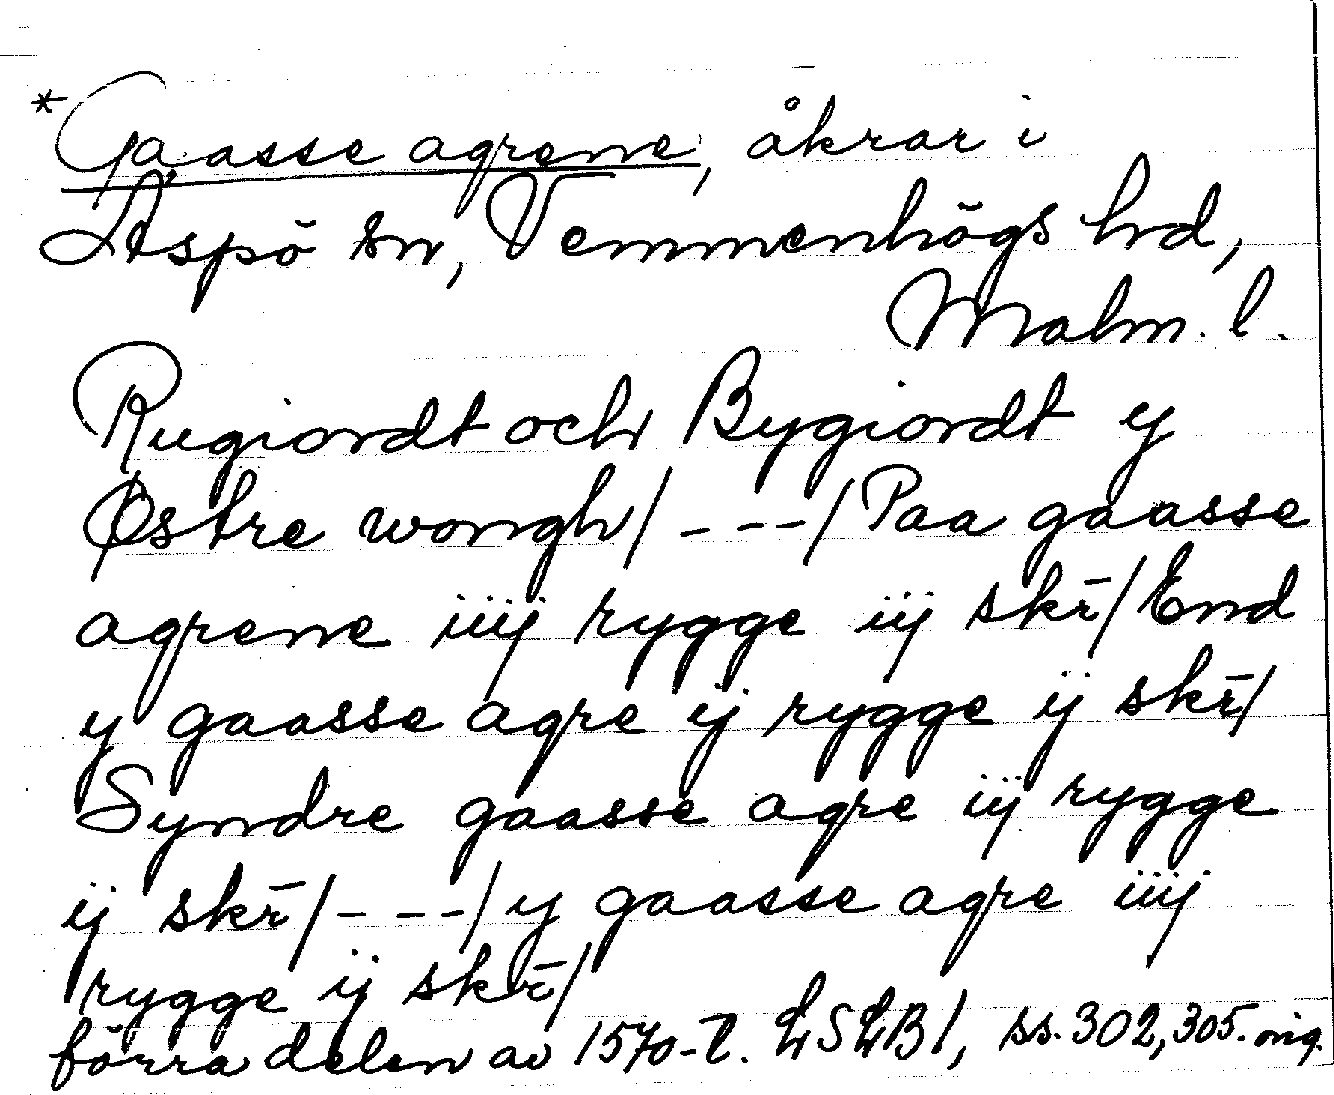 *Gaasse agrene, åkrar i
Äspö sn, Vemmenhögs hd,
Malm. l.
Rugiordt och Bygiordt y
Østre wongh/ - - - / Paa gaasse
agrene iiij rygge iij skr̄/ End
y gaasse agre ij rygge ij skr̄/
Syndre gaasse agre iij rygge
ij skr̄/ - - - / y gaasse agre iiij
rygge ij skr̄/
förra delen av 1570-t. LSLB 1, ss. 302, 305. orig.